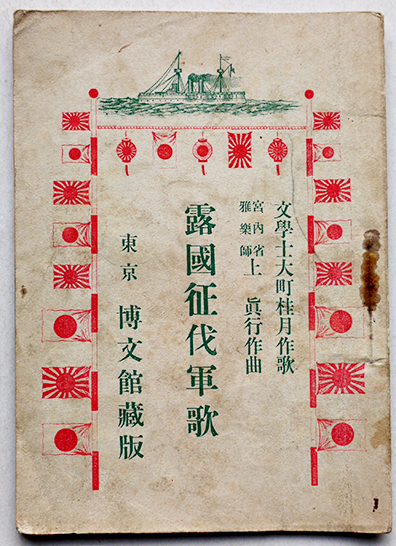 文學士大町桂月作歌
宮內省
雅樂師
上眞行作曲
露國征伐軍歌
東京 博文館藏版